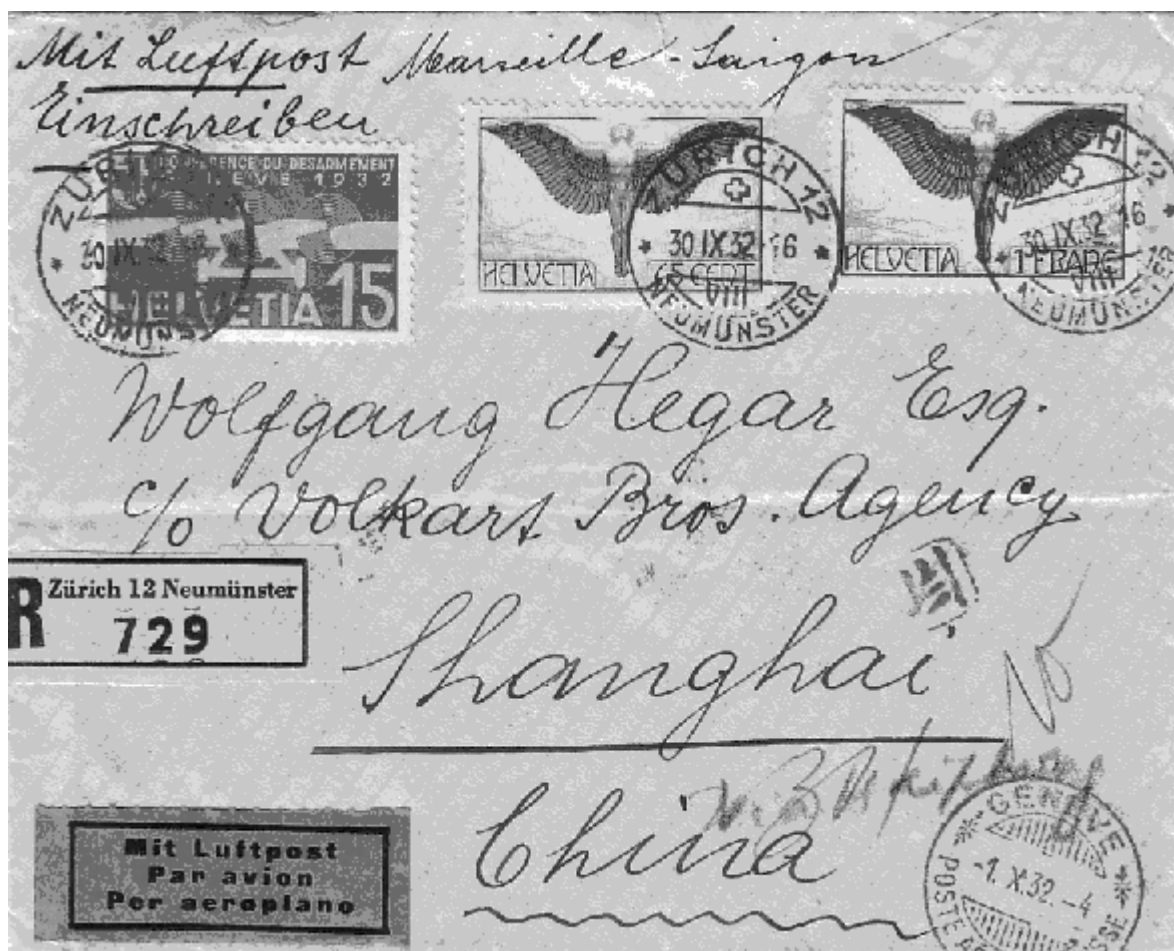 Mit Luftpost Marseille - Saigon
Einschreiben
CONFERENCE DU DESARMEMENT
GENEVE 1932
HELVETIA 15
ZÜRICH
30 IX.32
NEUMÜNS
HELVETIA 65 CENT
ZÜRICH 12
30 IX.32-16
VIII
NEUMÜNSTER
HELVETIA 1 FRANC
ZÜRICH 12
30 IX.32-16
VIII
NEUMÜNSTER
Wolfgang Hegar Esq.
c/o Volkart Bros. Agency
R Zürich 12 Neumünster
729
Shanghai
China
Mit Luftpost
Par avion
Per aeroplano
GENEVE
-1. X.32.-4
POSTE